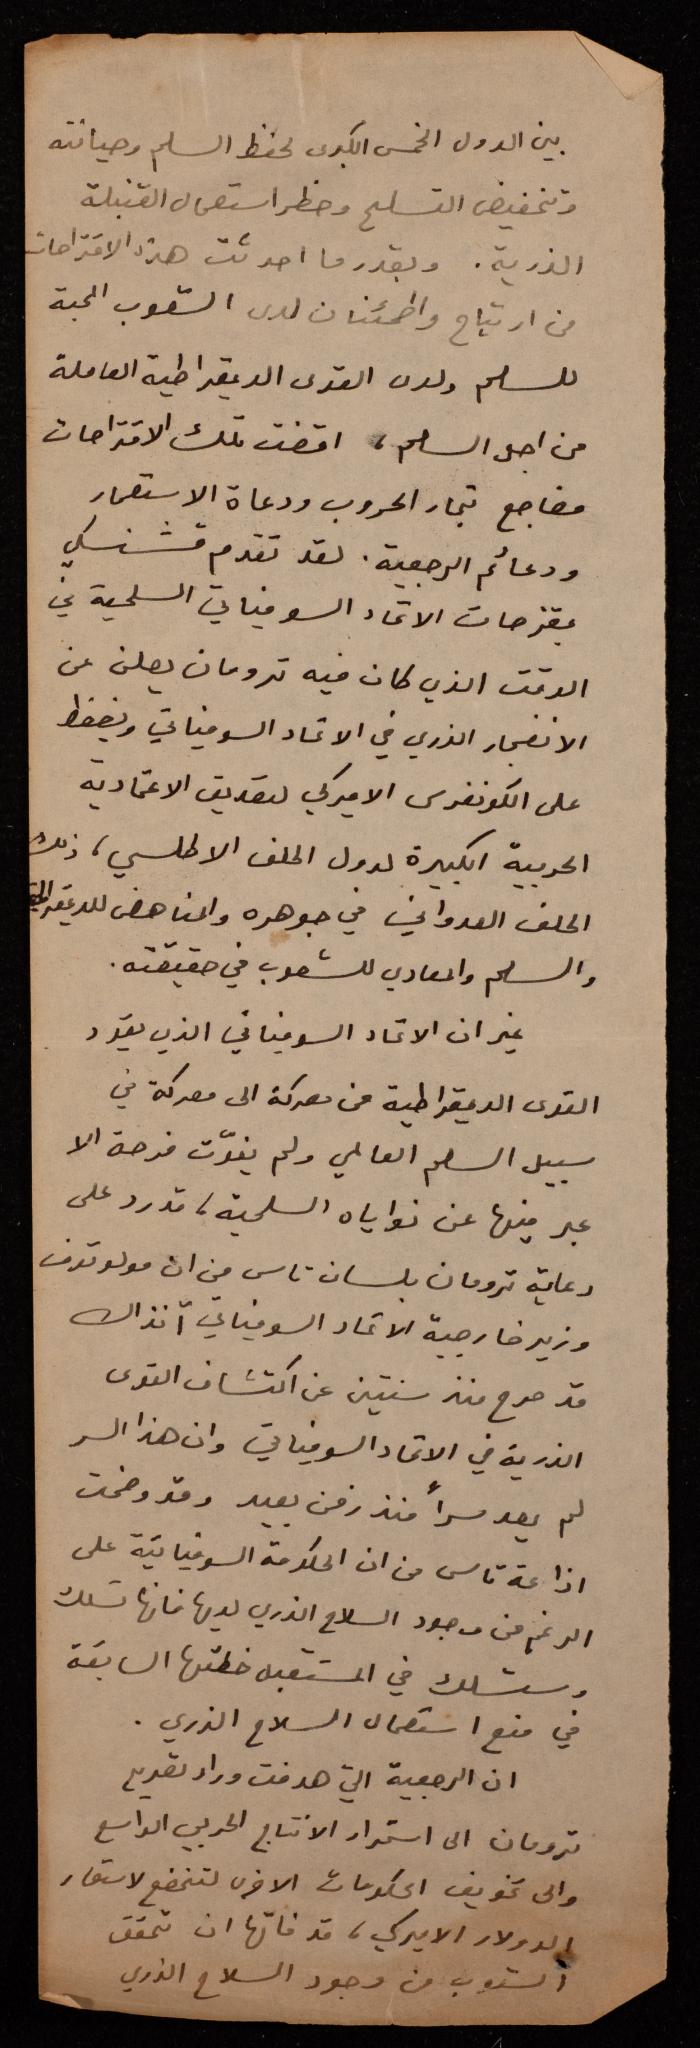 بين الدول الخمس الكبرى لحفظ السلم وصيانته
وتخفيض التسليح وحظر استعمال القنبلة
الذرية. وبقدر ما احدثت هذه الاقتراحات
من ارتياح واطمئنان لدى الشعوب المحبة
للسلم ولدى القوى الديمقراطية العاملة
من اجل السلم، اقضت تلك الاقتراحات
مضاجع تجار الحروب ودعاة الاستعمار
ودعائم الرجعية. لقد تقدم فشنسكي
بمقترحات الاتحاد السوفياتي السلمية في
الوقت الذي كان فيه ترومان يعلن عن
الانفجار الذري في الاتحاد السوفياتي ويضغط
على الكونغرس الاميركي لتصديق الاعتمادية
الحربية الكبيرة لدول الحلف الاطلسي، ذلك
الحلف العدواني في جوهره والمناهض للديمقراطية
والسلم والمعادي للشعوب في حقيقته.
غير ان الاتحاد السوفياتي الذي يقود
القوى الديمقراطية من معركة الى معركة في
سبيل السلم العالمي ولم يفوّت فرصة الا
عبر فيها عن نواياه السلمية، قد رد على
دعاية ترومان بلسان تاس من ان مولوتوف
وزير خارجية الاتحاد السوفياتي آنذاك
قد صرح منذ سنتين عن اكتشاف القوى
الذرية في الاتحاد السوفياتي وان هذا السر
لم يعد سراً منذ زمن بعيد وقد وضحت
اذاعة تاس من ان الحكومة السوفياتية على
الرغم من وجود السلاح الذري لديها فانها تسلك
وستسلك في المستقبل خطتها السابقة
في منع استعمال السلاح الذري.
ان الرجعية التي هدفت وراء تصريح
ترومان الى استمرار الانتاج الحربي الواسع
والى تخويف الحكومات الاخرى لتخضع لاستعمار
الدولار الاميركي، قد فاتها ان تحقق
الشعوب من وجود السلاح الذري